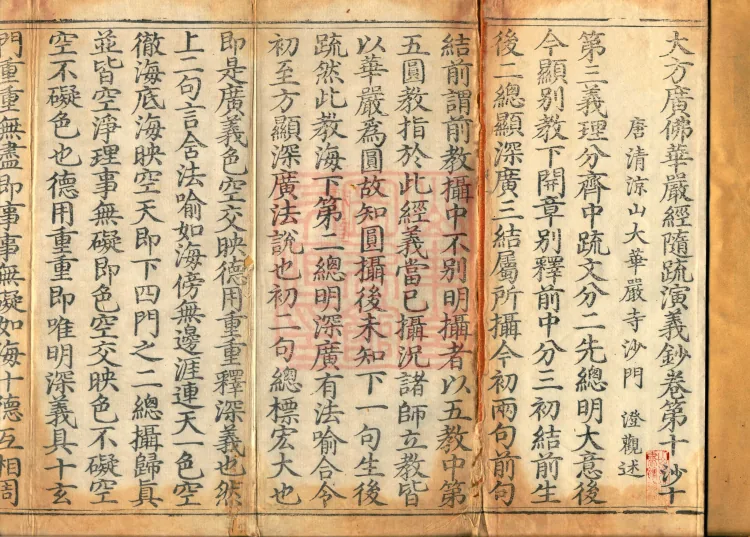 大方廣佛華嚴經隨疏演義鈔卷第十 沙十
唐清涼山大華嚴寺沙門 澄觀述
第三義理分齊中疏文分二先總明大意後
今顯別教下開章別釋前中分三初結前生
後二總顯深廣三結屬所攝今初兩句前句
結前謂前教攝中不別明攝者以五教中第
五圓教指於此經義當已攝況諸師立教皆
以華嚴為圓故知圓攝後未知下一句生後
疏然此教海下第二總明深廣有法喻合今
初至方顯深廣法說也初二句總標宏大也
即是廣義色空交映德用重重釋深義也然
上二句言含法喻如海傍無邊涯連天一色空
徹海底海映空天即下四門之二總攝歸真
並皆空淨理事無礙即色空交映色不礙空
空不礙色也德用重重即唯明深義具十玄
門重重無盡即事事無礙如海十德互相周